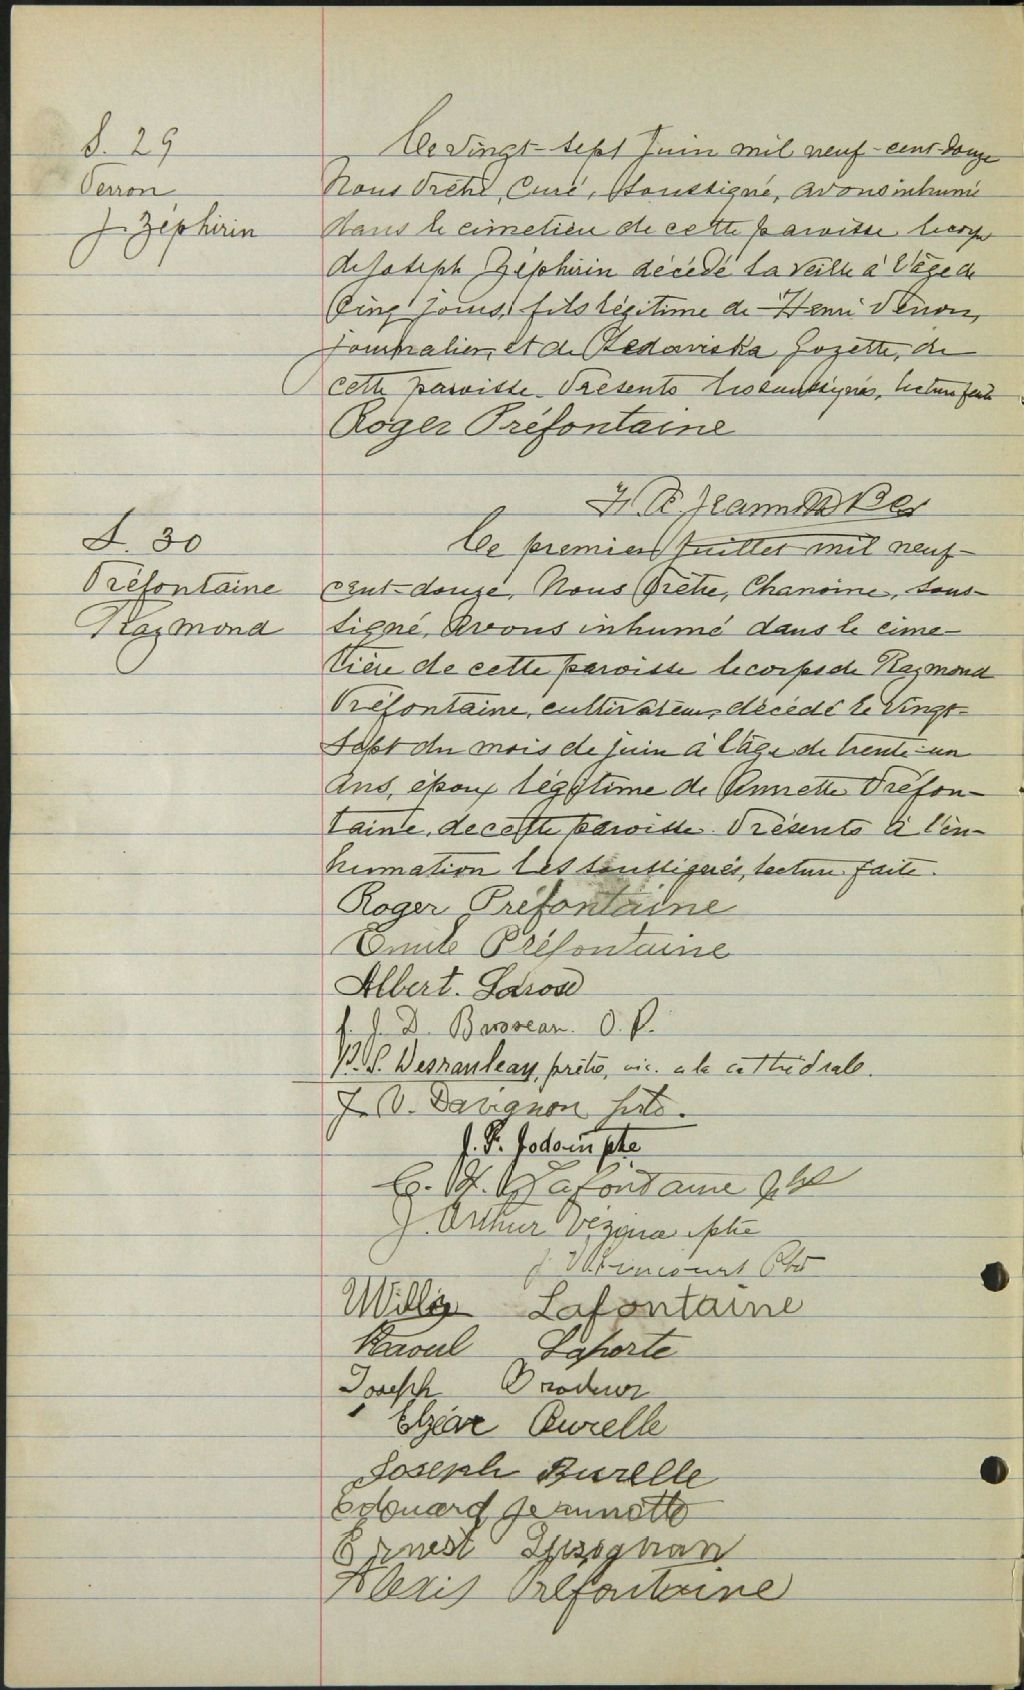 S. 29
Verron
J. Zéphirin
Ce vingt-sept Juin mil neuf-cent-douze
Nous Prêtre, Curé, soussigné, avons inhumé
dans le cimetière de cette paroisse le corps
de Joseph Zéphirin décédé la veille à l'âge de
Cinq jours, fils légitime de Henri Verron,
journalier, et de Gozette, de
cette paroisse. Présents les soussignés, lecture faite
Roger Préfontaine
Jeannotte
S. 30
Préfontaine
Raymond
Ce premier Juillet mil neuf-
cent-douze, Nous Prêtre, Chanoine, sous-
signé, Avons inhumé dans le cime-
tière de cette paroisse le corps de Raymond
Préfontaine, cultivateur, décédé le vingt-
sept du mois de juin à l'âge de trente-un
ans, époux légitime de Annette Préfon-
taine, de cette paroisse. Présents à l'in-
humation les soussignés, lecture faite.
Roger Préfontaine
Emile Préfontaine
Albert. Larose
f. J. D. Brosseau. O. P.
P. S. Desranleau, prêtre, vic. à la cathédrale.
J. V. Davignon ptr.
J. F. Jodoin ptre
C. H. Lafontaine ptre
J. Arthur Vézina ptre
Ptr
Willie Lafontaine
Raoul Laporte
Joseph Brodeur
Elzéar Burelle
Joseph Burelle
Edouard Jeannotte
Ernest Lusignan
Alexis Préfontaine